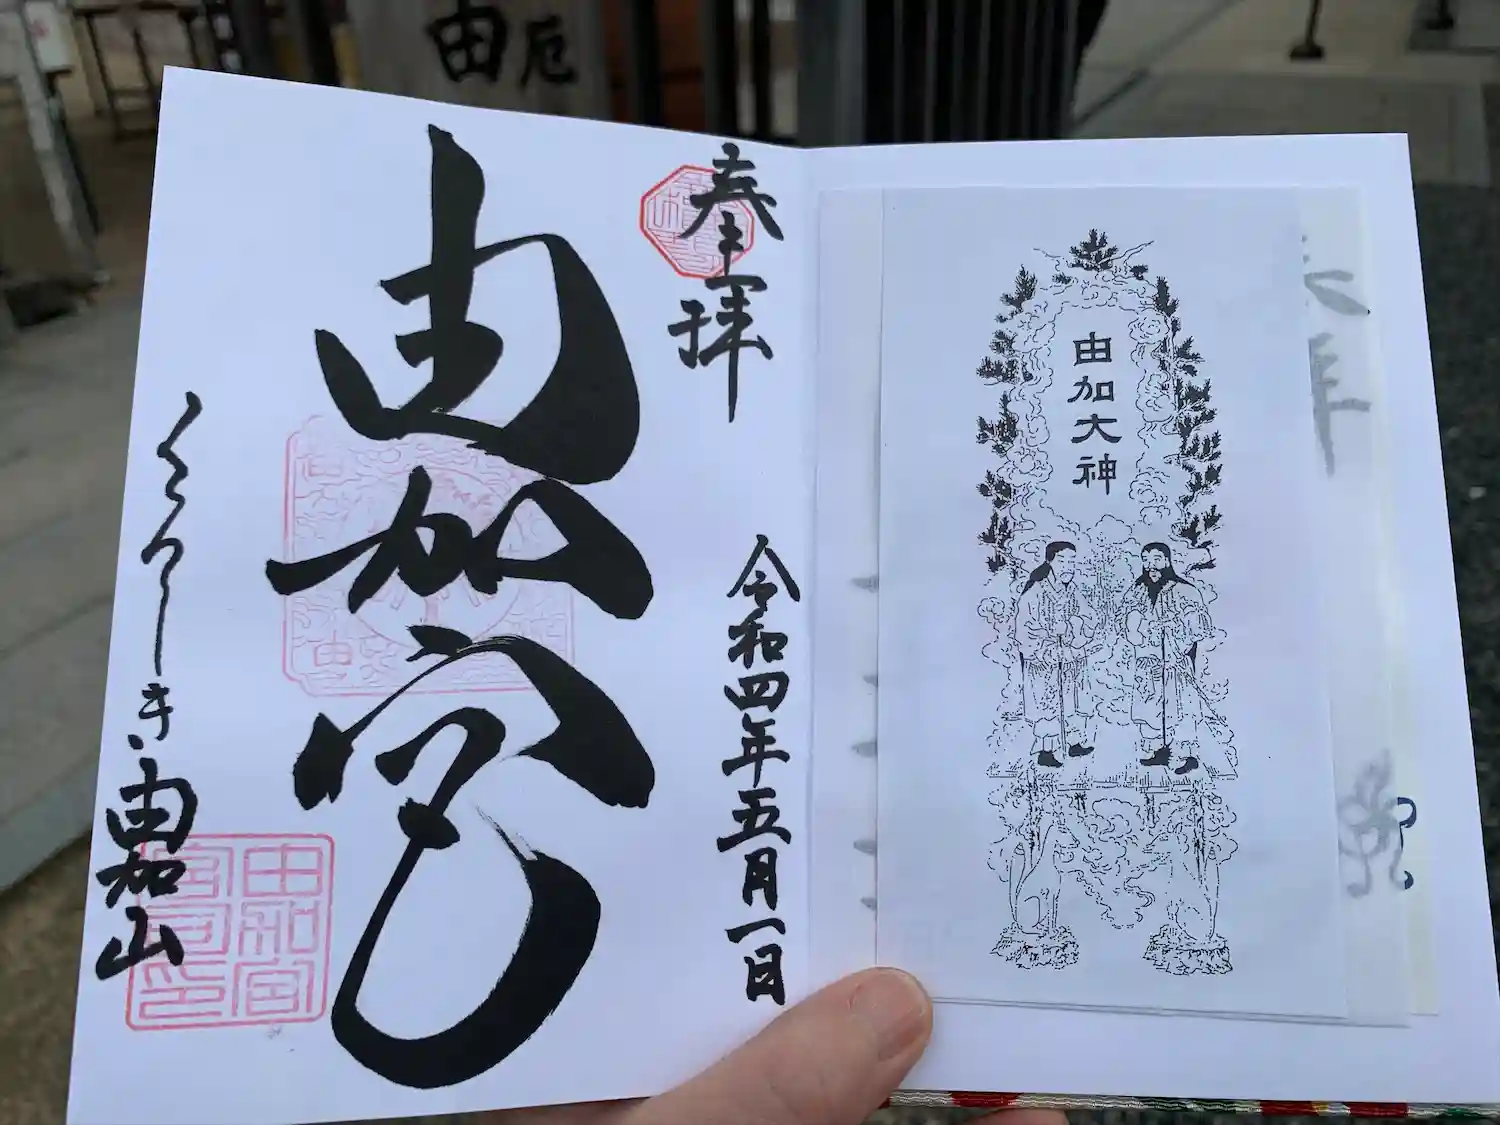 由加大神
奉拝
令和四年五月一日
由加宮
くらしき 由加山
厄
由